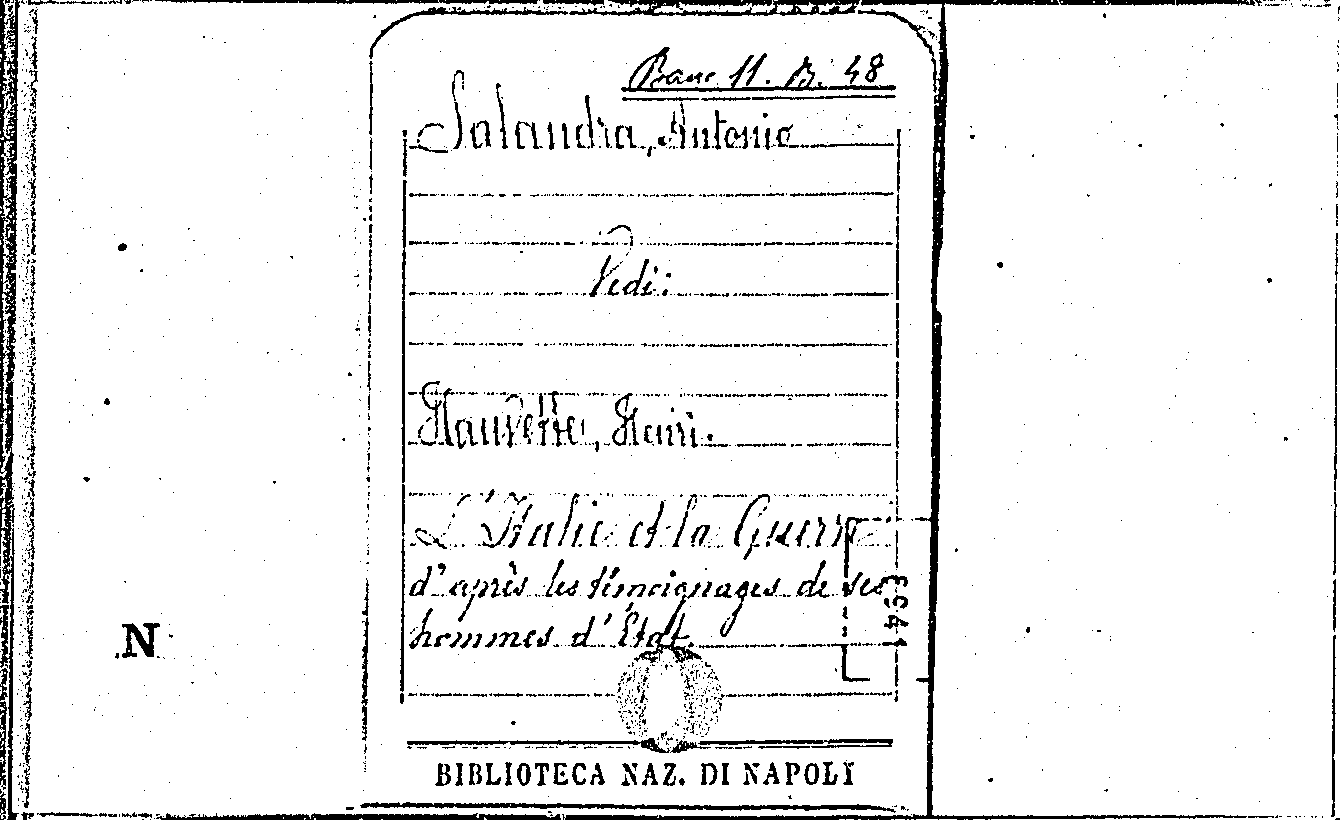 Banc 11. B. 48
Salandra, Antonio
Vedi:
Hauvette, Henri.
L'Italie et la Guerre
d'après les témoignages de ses
hommes d'État
1453
N
BIBLIOTECA NAZ. DI NAPOLI